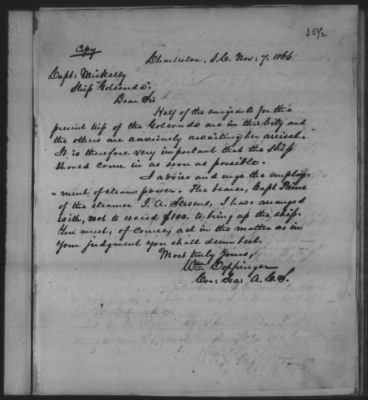 35½
Copy
Charleston, S.C. Nov: 7. 1866
Capt: Miskelly
Ship "Golconda".
Dear Sir
Half of the emigrants for the
present trip of the Golconda are in this City and
the others are anxiously awaiting her arrival.
It is therefore very important that the ship
should come in as soon as possible.
I advise and urge the employ-
-ment of steam power. The bearer, Capt
of the steamer I have arranged
with, not to exceed $100. to bring up the ship.
You must, of course, act in the matter as in
Your judgment you shall deem best.
Most truly Yours,
Wm Coppinger
Cor: Sec: A.C.S.